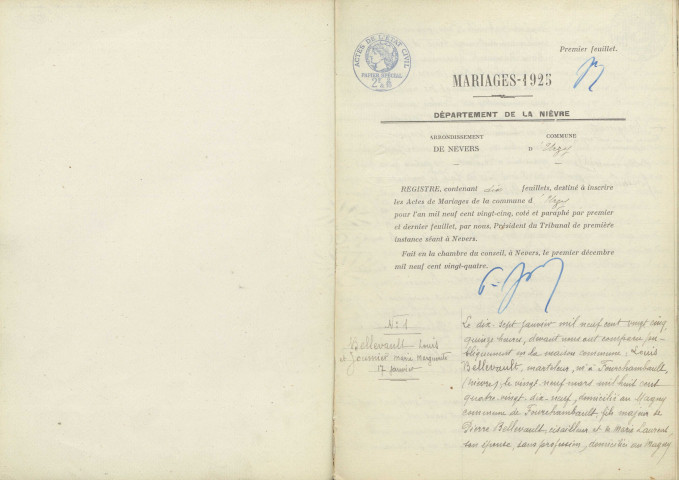 Premier feuillet.
ACTES DE L'ETAT CIVIL
PAPIER SPÉCIAL
MARIAGES-1925
DÉPARTEMENT DE LA NIÈVRE
ARRONDISSEMENT
DE NEVERS
COMMUNE
D'Urzy
REGISTRE, contenant dix feuillets, destiné à inscrire
les Actes de Mariages de la commune d'Urzy
pour l'an mil neuf cent vingt-cinq, coté et paraphé par premier
et dernier feuillet, par nous, Président du Tribunal de première
instance séant à Nevers.
Fait en la chambre du conseil, à Nevers, le premier décembre
mil neuf cent vingt-quatre.
N° 1
Bellevault Louis
et Journiet Marie Marguerite
17 Janvier
Le dix-sept Janvier mil neuf cent vingt cinq,
quinze heures, devant nous ont comparu pu-
bliquement en la maison commune, Louis
Bellevault, marteleur, né à Fourchambault,
(nièvre), le vingt neuf mars mil huit cent
quatre-vingt-dix-neuf, domicilié au Magny
commune de Fourchambault, fils majeur de
Pierre Bellevault, cisailleur et de Marie Laurent
son épouse, sans profession, domiciliés au Magny